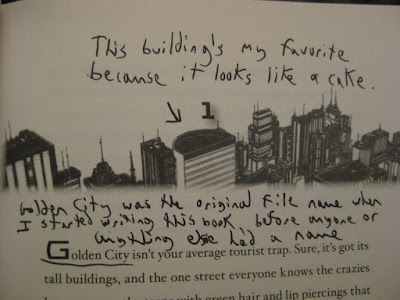 This building's my favorite
because it looks like a cake.
1
Golden City was the original file name when
I started writing this book, before anyone or
anything else had a name
Golden City isn't your average tourist trap. Sure, it's got its
tall buildings, and the one street everyone knows the crazies
with green hair and lip piercings that